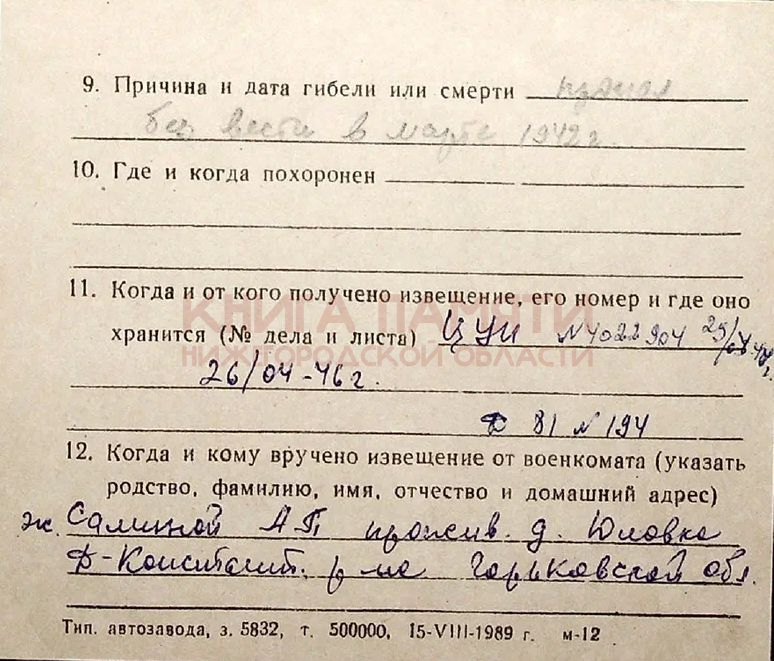 9. Причина и дата гибели или смерти пропал
без вести в марте 1942 г.
10. Где и когда похоронен
11. Когда и от кого получено извещение, его номер и где оно
КНИГА ПАМЯТИ
хранится (№ дела и листа) N 4022904
НИЖЕГОРОДСКОЙ ОБЛАСТИ
26/04-46 г.
81 N 194
12. Когда и кому вручено извещение от военкомата (указать
родство, фамилию, имя, отчество и домашний адрес)
ж. Саминой А П прожив. д. Юловка
Д-Констант. р-на Горьковской обл.
Тип. автозавода, з. 5832, т. 500000, 15-VIII-1989 г. м-12